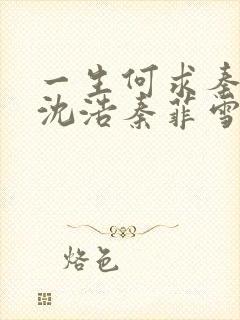 一生何求秦
沈浩秦菲雪
烙色